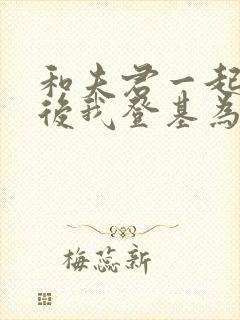 和夫君一起
後我登基為
梅蕊新